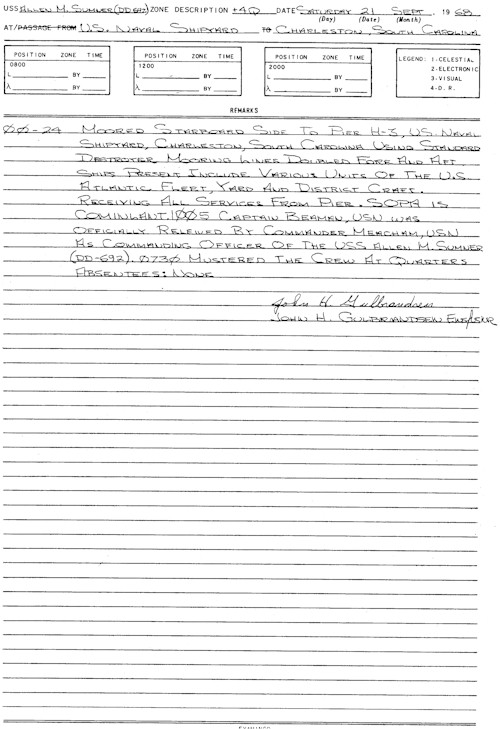 USS ALLEN M. SUMNER (DD 692) ZONE DESCRIPTION +4Q DATE SATURDAY 21 SEPT. 19 68
(Day) (Date) (Month)
AT/PASSAGE FROM U.S. NAVAL SHIPYARD TO CHARLESTON, SOUTH CAROLINA
POSITION ZONE TIME POSITION ZONE TIME POSITION ZONE TIME LEGEND: 1-CELESTIAL
0800 1200 2000 2-ELECTRONIC
L BY L BY L BY 3-VISUAL
λ BY λ BY λ BY 4-D. R.
REMARKS
00-24 MOORED STARBOARD SIDE TO PIER H-3, U.S. NAVAL
SHIPYARD, CHARLESTON, SOUTH CAROLINA USING STANDARD
DESTROYER MOORING LINES DOUBLED FORE AND AFT.
SHIPS PRESENT INCLUDE VARIOUS UNITS OF THE U.S.
ATLANTIC FLEET, YARD AND DISTRICT CRAFT.
RECEIVING ALL SERVICES FROM PIER. SOPA IS
COMINLANT. 1005 CAPTAIN BEAMAN, USN WAS
OFFICIALLY RELEIVED BY COMMANDER MEACHAM, USN
AS COMMANDING OFFICER OF THE USS ALLEN M. SUMNER
(DD-692). 0730 MUSTERED THE CREW AT QUARTERS
ABSENTEES: NONE
John H. Gulbrandsen
JOHN H. GULBRANDSEN